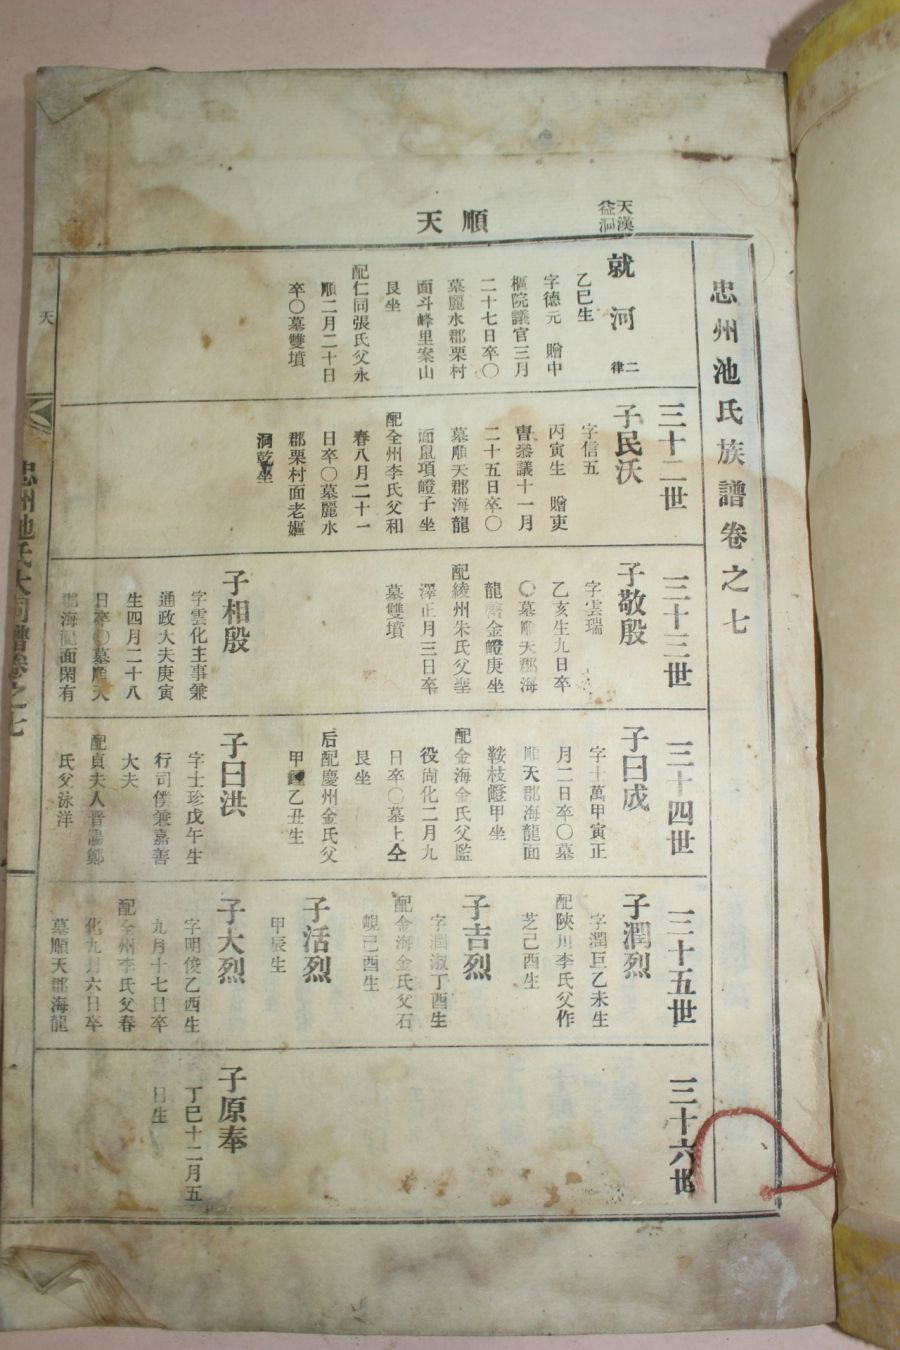 忠州池氏族譜卷之七
天漢
益洞
順天
就河
二
律
乙巳生
字德元 贈中
樞院議官三月
二十七日卒〇
墓麗水郡栗村
面斗峰里案山
艮坐
配仁同張氏父永
順二月二十日
卒〇墓雙墳
三十二世
子民沃
字信五
丙寅生 贈吏
曹參議十一月
二十五日卒〇
墓順天郡海龍
面鼠項嶝子坐
配全州李氏父和
春八月二十一
日卒〇墓麗水
郡栗村面老嫗
洞乾坐
三十三世
子敬殷
字雲瑞
乙亥生九日卒
〇墓順天郡海
龍 金嶝庚坐
配綾州朱氏父聖
澤正月三日卒
墓雙墳
子相殷
字雲化主事兼
通政大夫庚寅
生四月二十八
日卒〇墓順天
郡海龍面閑有
三十四世
子曰成
字士萬甲寅正
月二日卒〇墓
順天郡海龍面
鞍枝嶝甲坐
配金海金氏父監
役尙化二月九
日卒〇墓上仝
艮坐
后配慶州金氏父
甲 乙丑生
子曰洪
字士珍戊午生
行司僕兼嘉善
大夫
配貞夫人晋陽鄭
氏父泳洋
三十五世
子潤烈
字潤巨乙未生
配陜川李氏父作
芝己酉生
子吉烈
字潤淑丁酉生
配金海金氏父石
峴己酉生
子活烈
甲辰生
子大烈
字明俊乙酉生
九月十七日卒
配全州李氏父春
化九月六日卒
墓順天郡海龍
三十六世
子原奉
丁巳十二月五
日生
天
忠州池氏大同譜卷之七